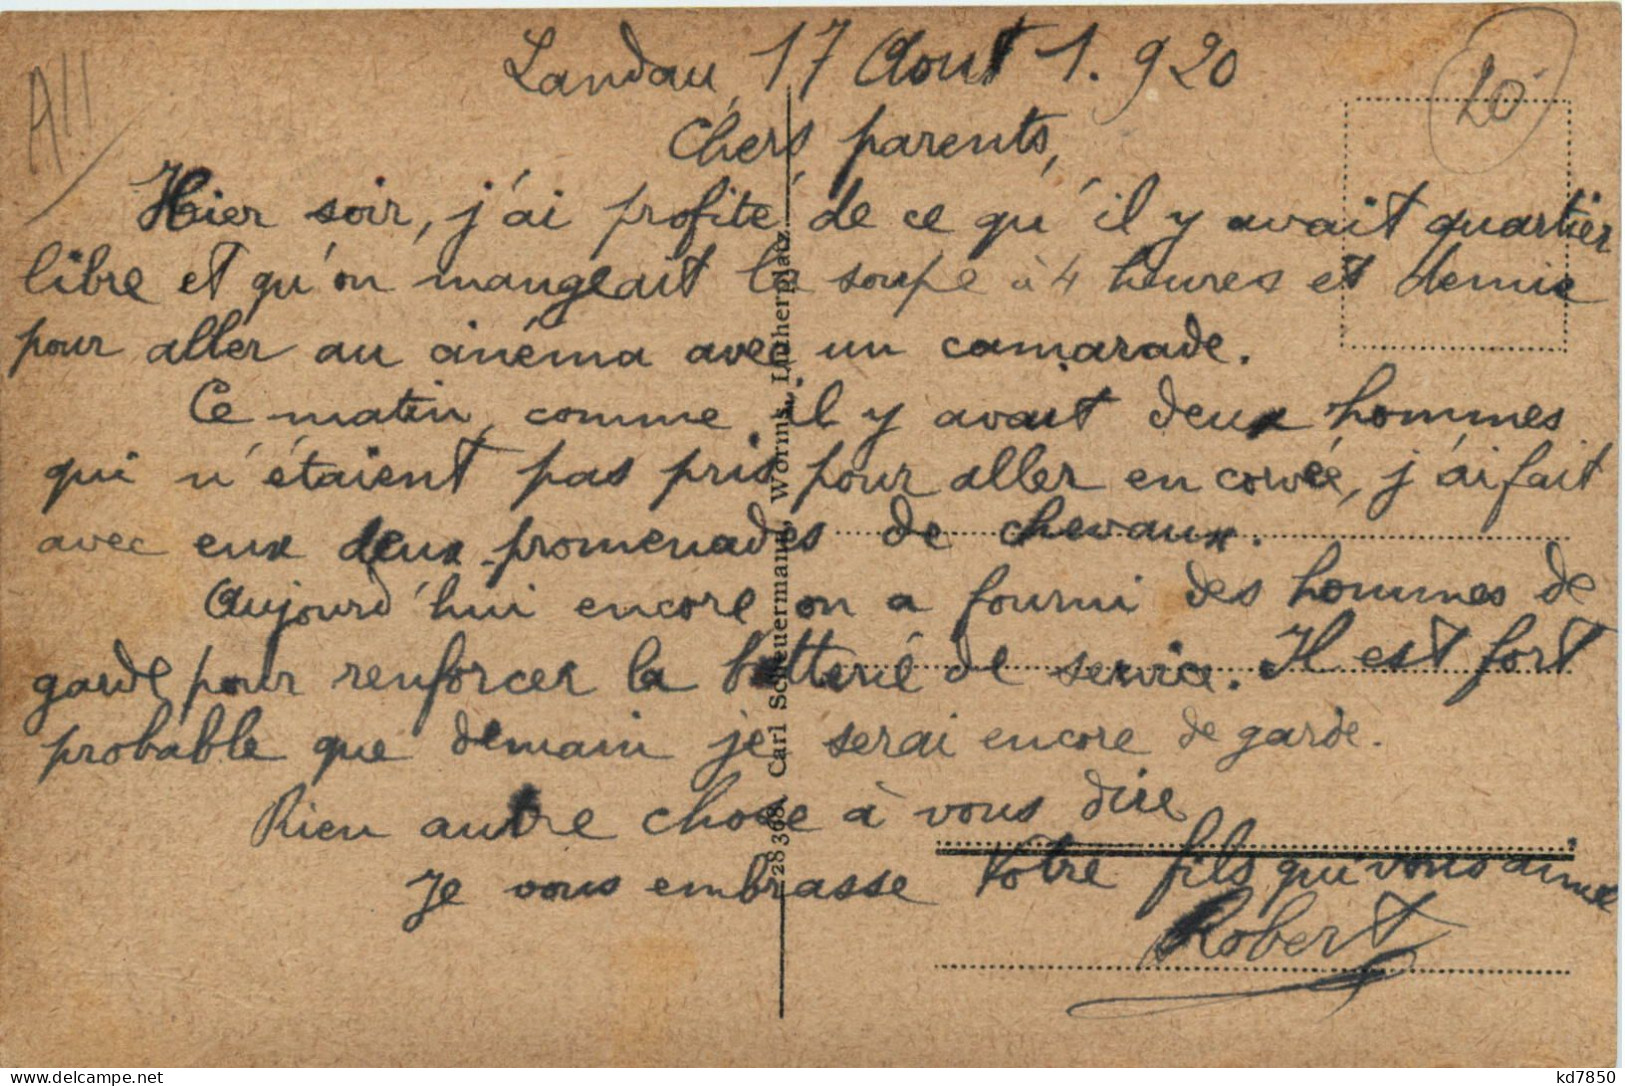 A11
20
Landau 17 Aout 1.920
Chers parents,
Hier soir, j'ai profité de ce qu'il y avait quartier
libre et qu'on mangeait la soupe à 4 heures et demie
pour aller au cinéma avec un camarade.
Ce matin, comme il y avait deux hommes
qui n'étaient pas pris pour aller en corvée, j'ai fait
avec eux deux promenades de chevaux.
Aujourd'hui encore on a fourni des hommes de
garde pour renforcer la batterie de service. Il est fort
probable que demain je serai encore de garde.
Rien autre chose à vous dire
Je vous embrasse Votre fils qui vous aime
Robert
28368 Carl Scheuermann, Worms, Lutherplatz
kd7850